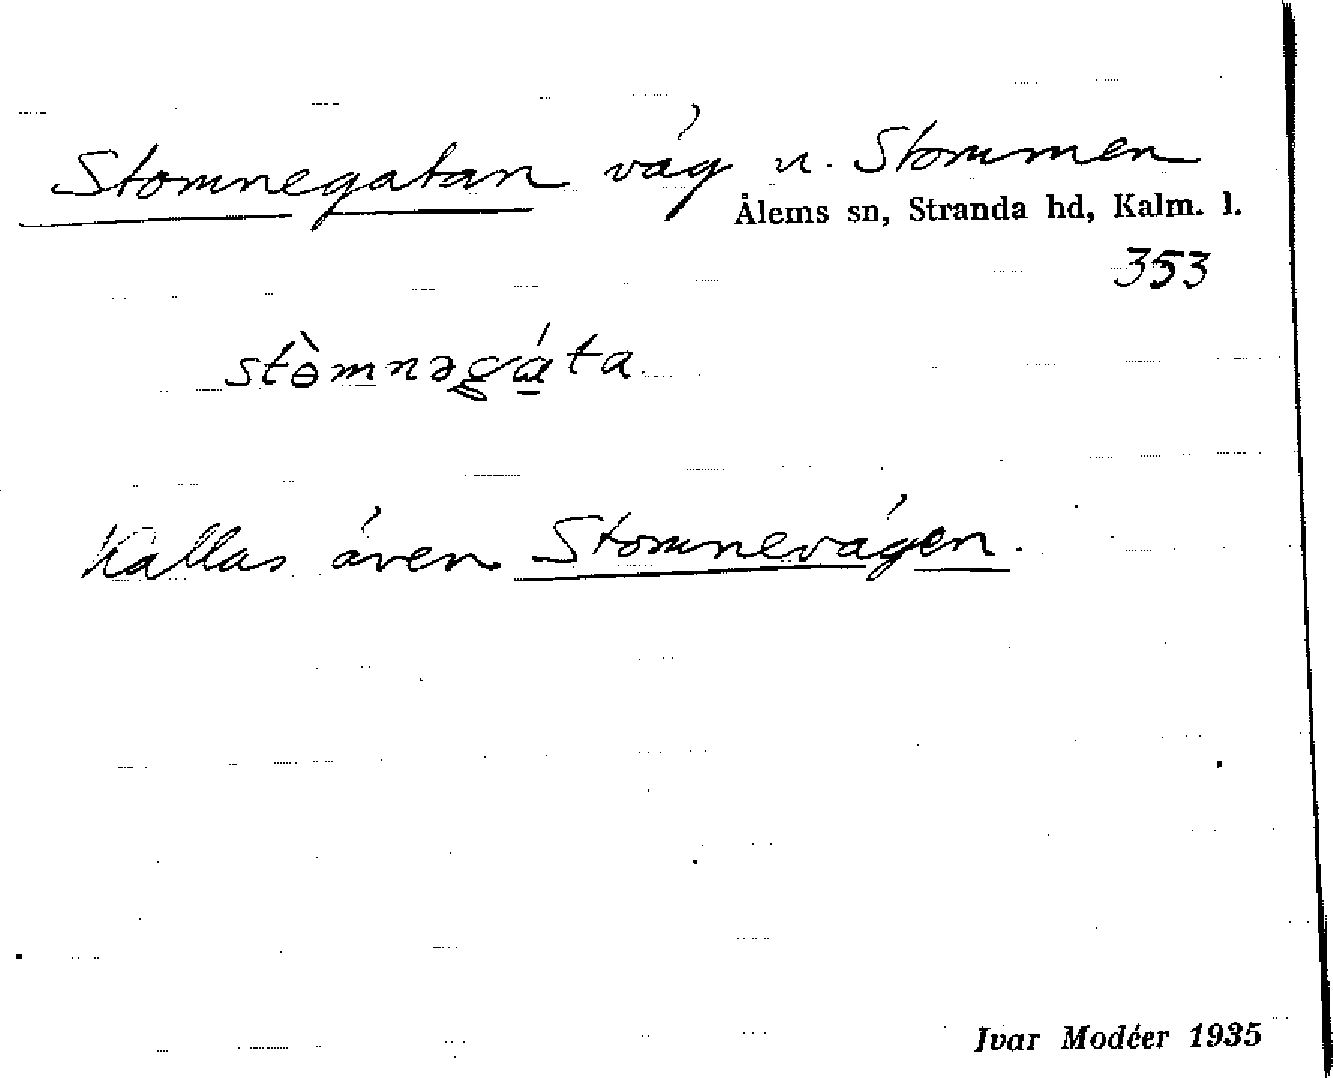 Stomnegatan väg u. Stommen
Ålems sn, Stranda hd, Kalm. l.
353
stɵ̀mnəgɑ́ta
Kallas även Stomnevägen.
Ivar Modéer 1935